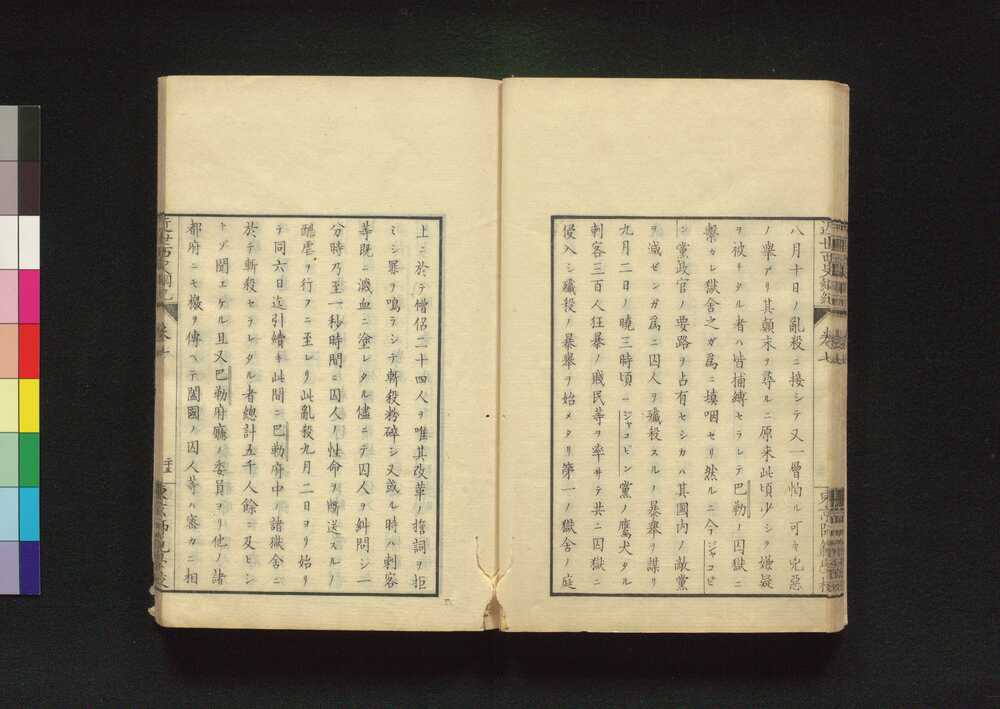 八月十日ノ亂殺ニ接シテ又一層怕ル可キ兇惡
ノ舉アリ其顛末ヲ尋ルニ原來此頃少シク嫌疑
ヲ被リタル者ハ皆捕縛セラレテ巴勒ノ囚獄ニ
繫カレ獄舍之ガ爲ニ填咽セリ然ルニ今ジャコビ
ン黨政官ノ要路ヲ占有セシカハ其國内ノ敵黨
ヲ滅ゼンガ爲ニ囚人ヲ殲殺スルノ暴舉ヲ謀リ
九月二日ノ曉三時頃一ジャコビン黨ノ鷹犬タル
刺客三百人狂暴ノ賤民等ヲ率サテ共ニ囚獄ニ
侵入シ殲殺ノ暴舉ヲ始メタリ第一ノ獄舍ノ庭
近世西史綱紀 卷七
上ニ於テ僧侶二十四人ヲ唯其改革ノ擔詞ヲ拒
ミシ罪ヲ鳴ラシテ斬殺粉碎シ又或ル時ハ刺客
等既ニ濺血ニ塗レタル儘ニテ囚人ヲ糾問シ一
分時乃至一秒時間ニ囚人ノ性命ヲ斷送スルノ
醜虐ヲ行フニ至レリ此亂殺九月二日ヨリ始リ
テ同六日迄引續キ此間ニ巴勒府中ノ諸獄舍ニ
於テ斬殺セラレタル者總計五千人餘ニ及ビシ
トゾ聞エケル且又巴勒府廳ノ委員ヨリ他ノ諸
都府ニモ檄ヲ傳ヘテ闔國ノ囚人等ハ審カニ相
近世西史綱紀 卷七